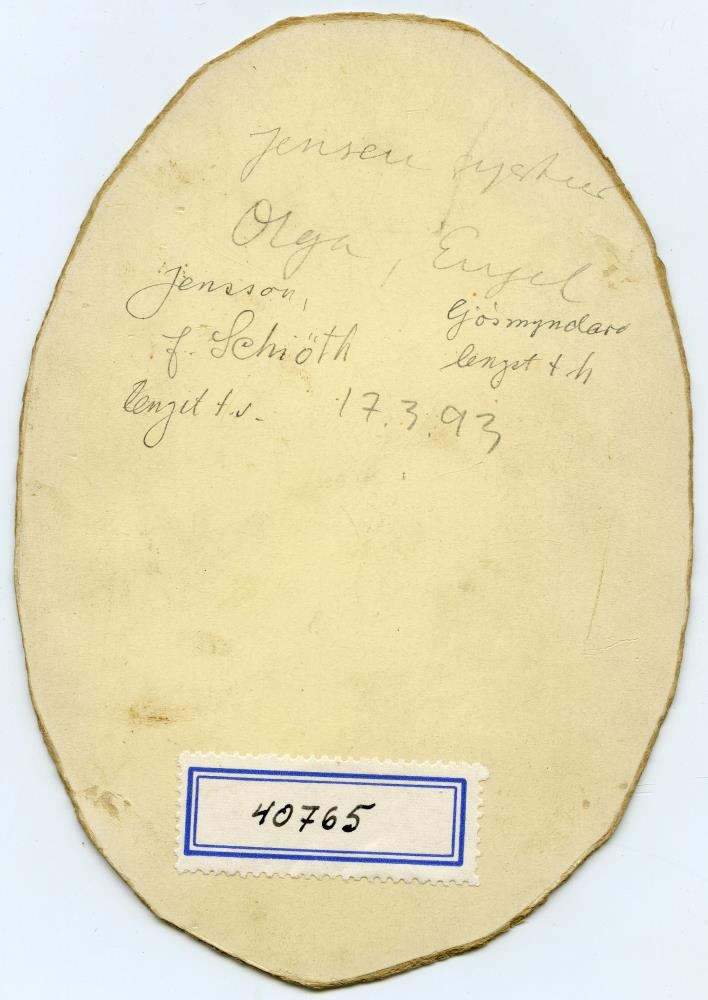 Jensen systur
Olga, Engel
Jensson,
f. Schiöth
lengst t.v.
ljósmyndara
lengst t h
17.3.93
40765